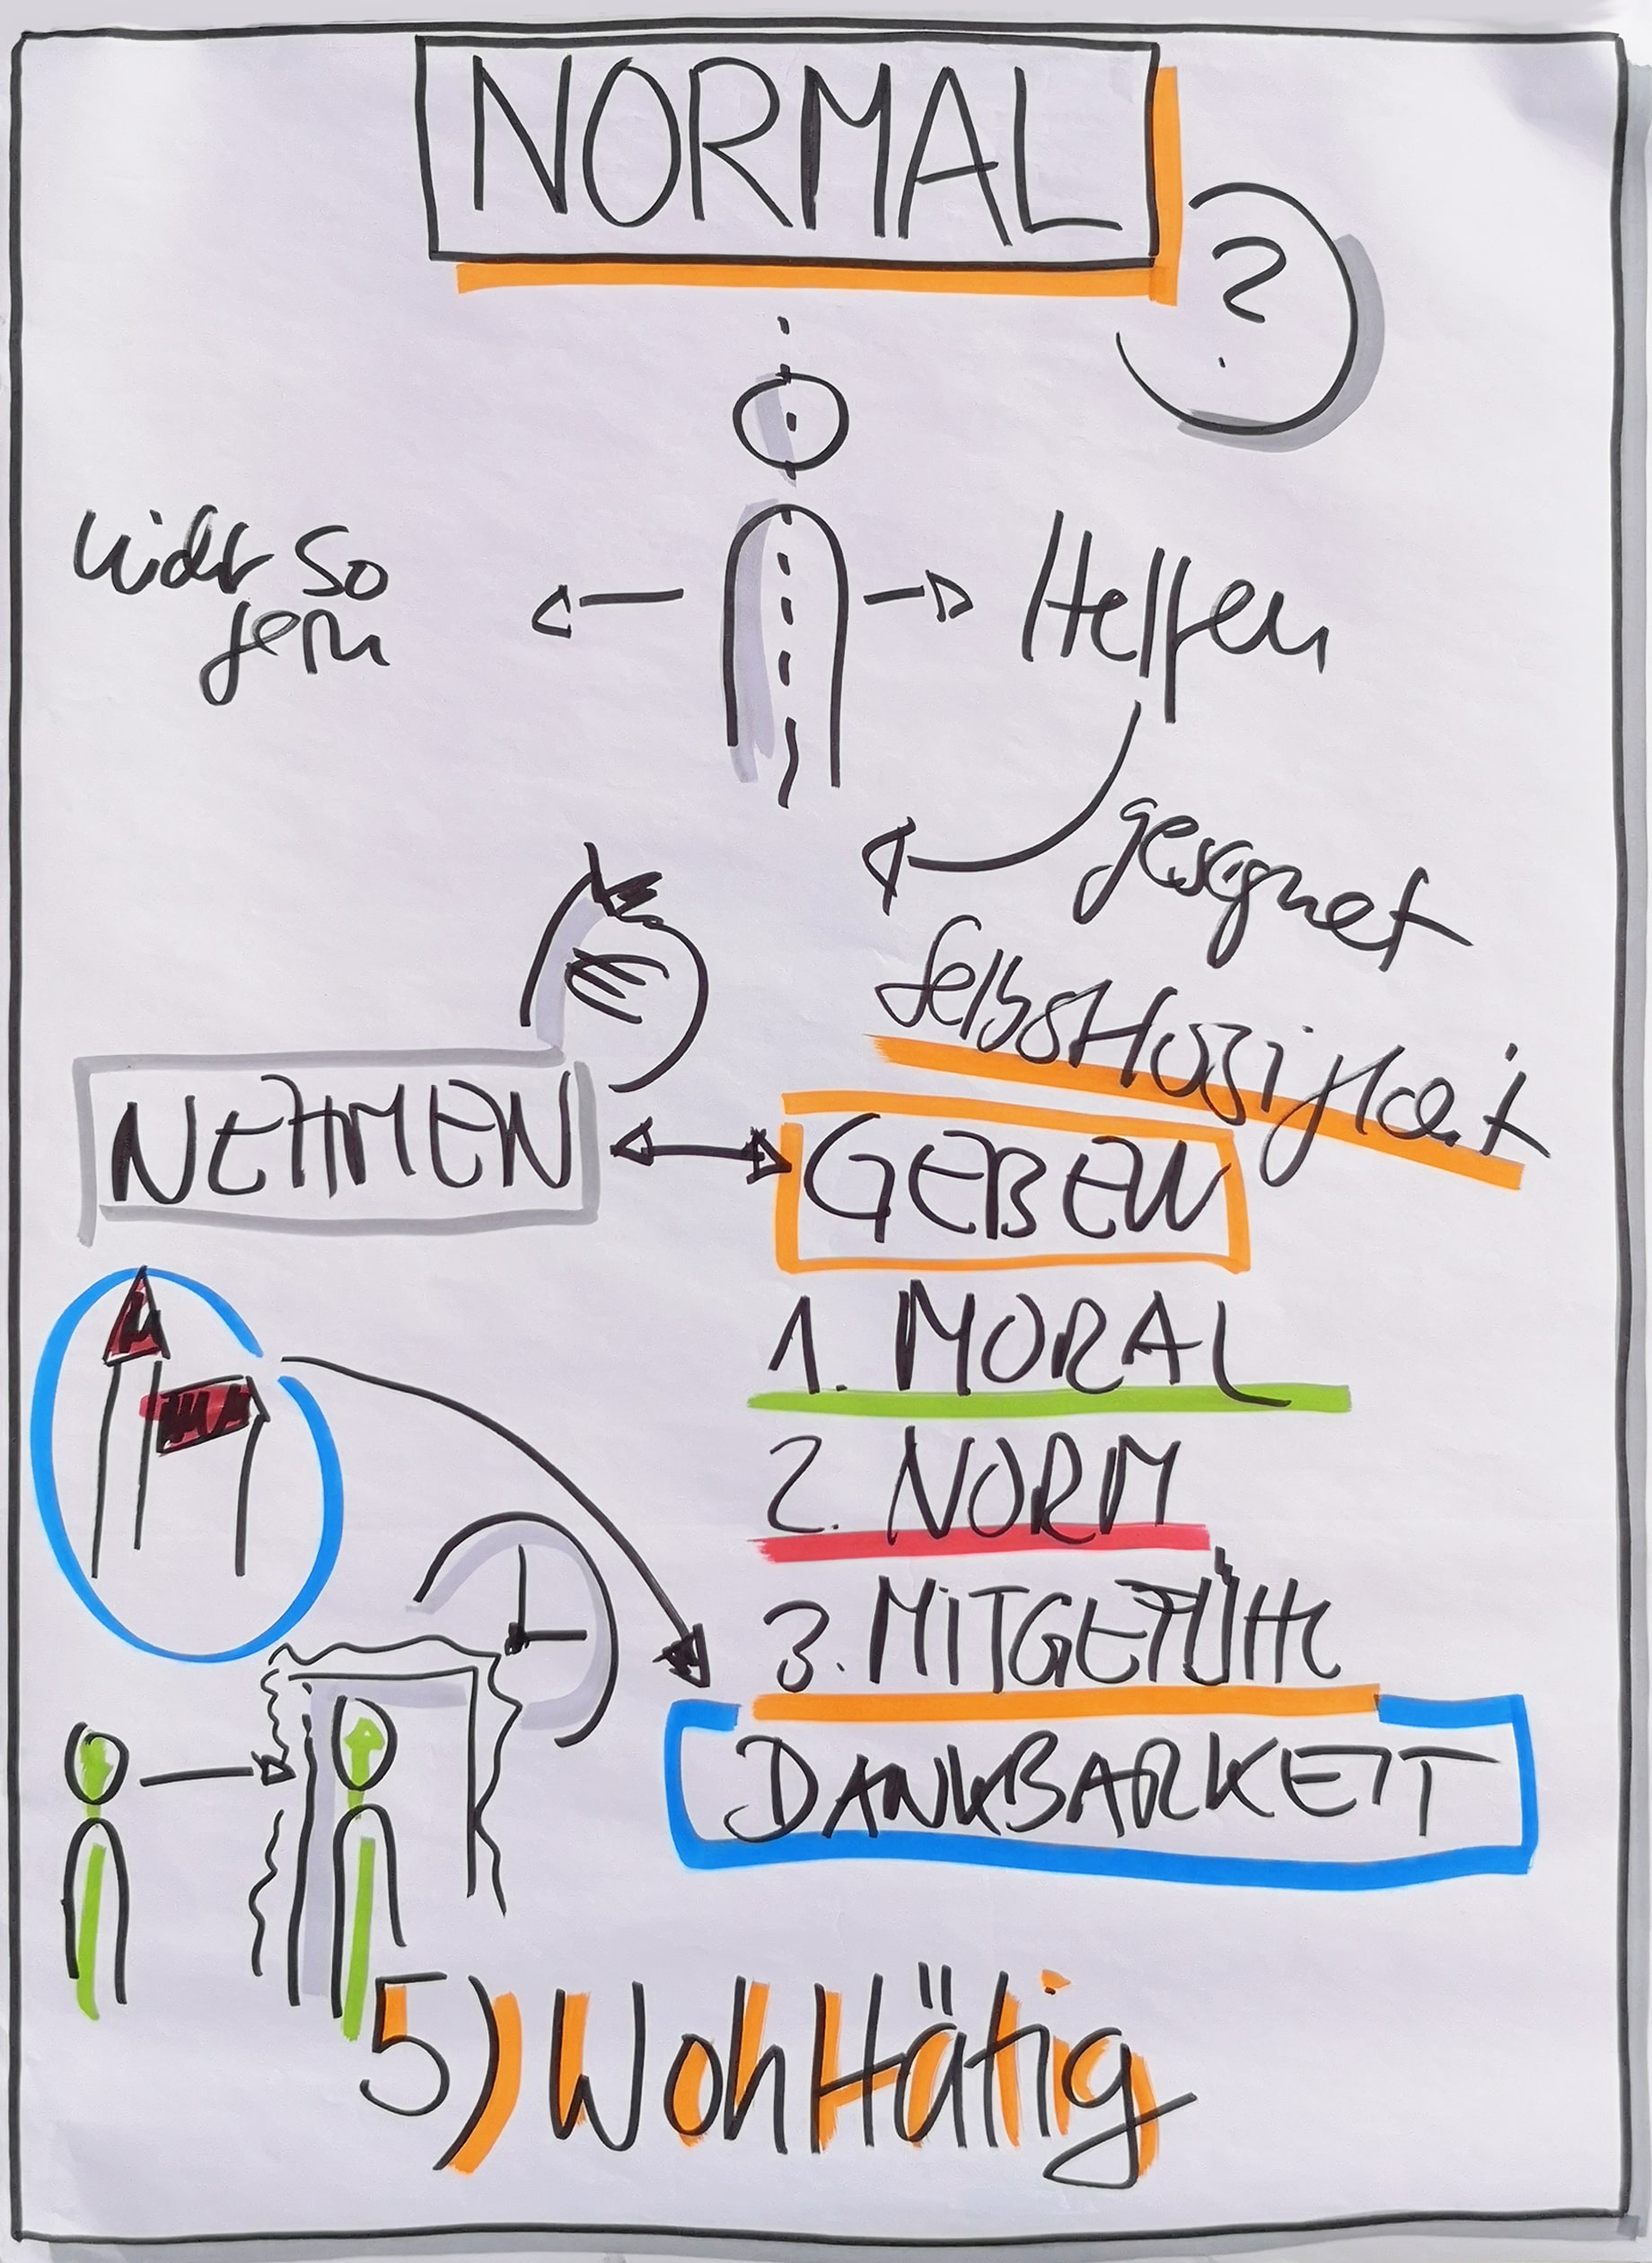 NORMAL
?
nicht so
gern
Helfen
gesegnet
Selbstlosigkeit
€
NEHMEN
GEBEN
1. MORAL
2. NORM
3. MITGEFÜHL
DANKBARKEIT
5) Wohltätig